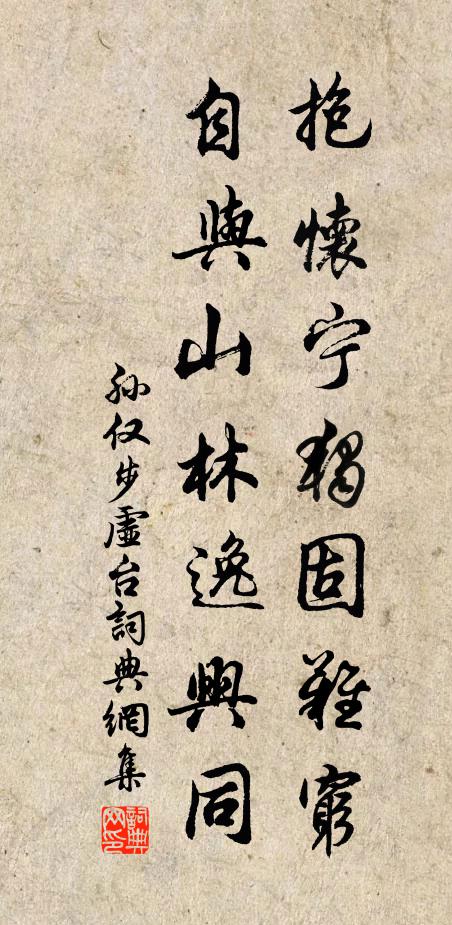 抱懷宁獨固難窮
自與山林逸興同
孙仅步虛台詞典網集
詞典
网印